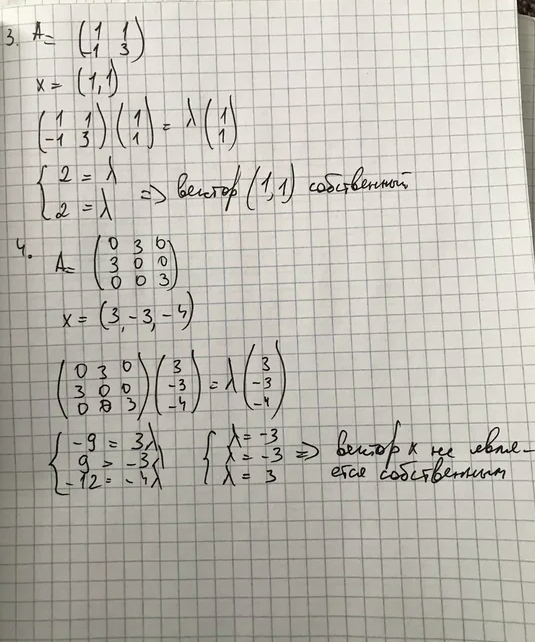 3. A = ( 1 1
-1 3 )
x = (1,1)
( 1 1
-1 3 ) ( 1
1 ) = λ ( 1
1 )
{ 2 = λ
2 = λ => вектор (1,1) собственный
4. A = ( 0 3 0
3 0 0
0 0 3 )
x = (3, -3, -4)
( 0 3 0
3 0 0
0 0 3 ) ( 3
-3
-4 ) = λ ( 3
-3
-4 )
{ -9 = 3λ { λ = -3
9 = -3λ λ = -3 => вектор x не явля-
-12 = -4λ λ = 3 ется собственным